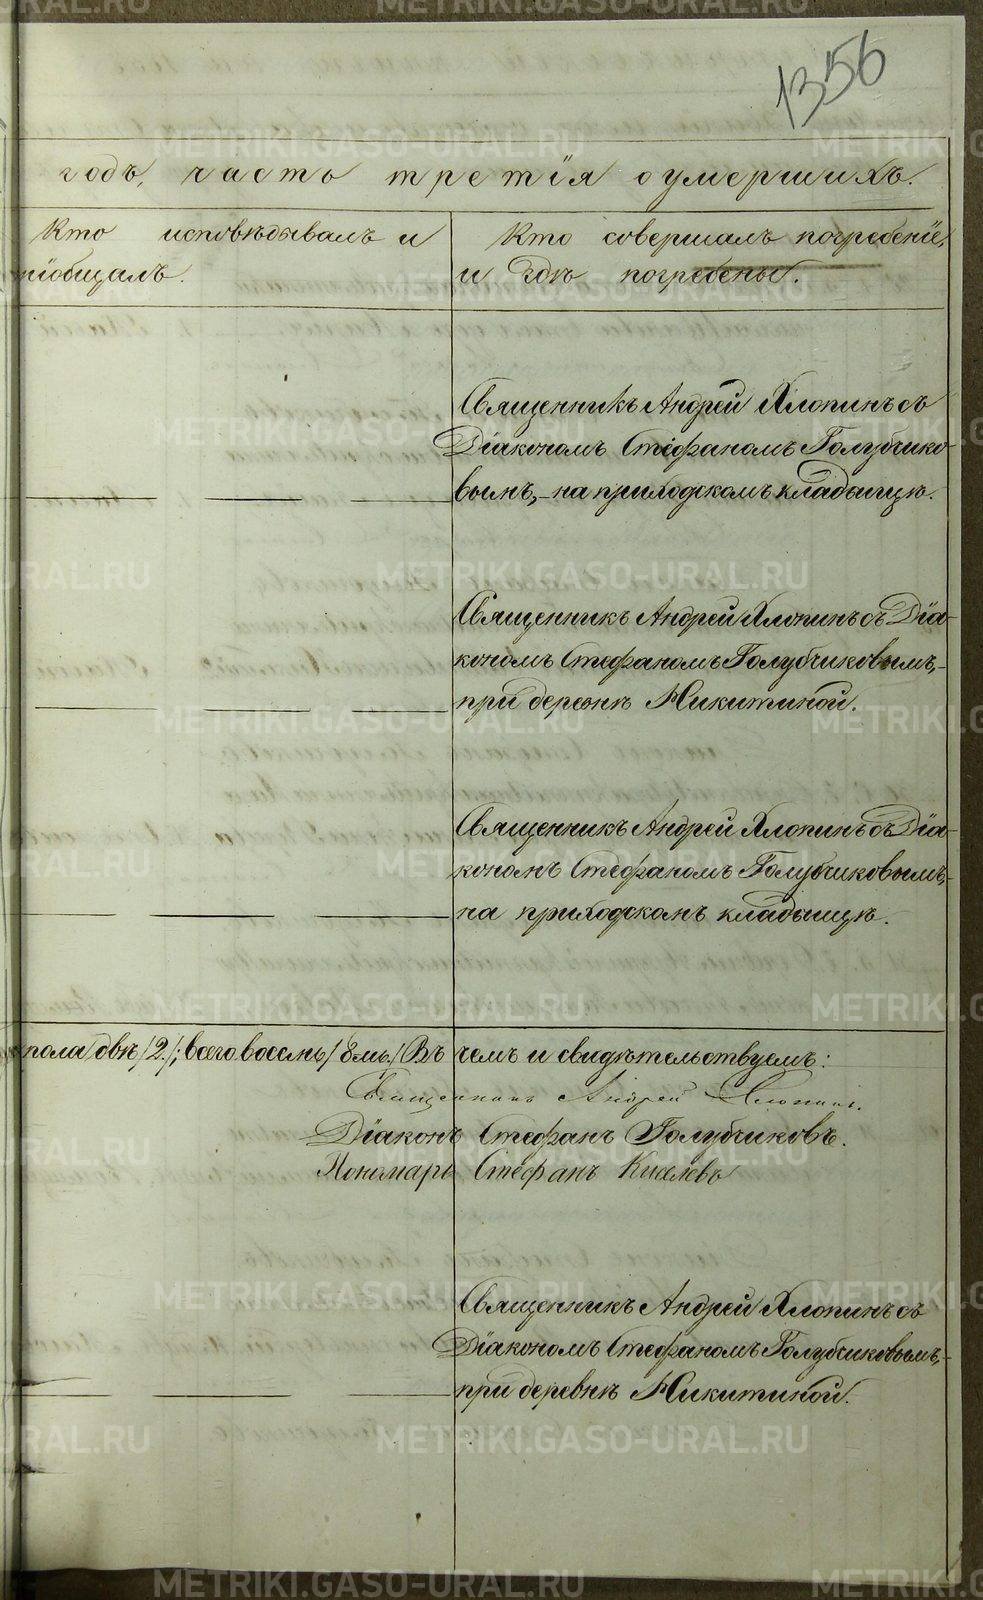 1356
годъ, часть третїя о умершихъ.
Кто исповѣдывалъ и
прїобщалъ.
Кто совершалъ погребенїе,
и гдѣ погребены.
Священникъ Андрей Хлопинъ съ
Дїакономъ Стефаномъ Голубчико-
вымъ, на приходскомъ кладбищѣ.
Священникъ Андрей Хлопинъ съ Дїа-
кономъ Стефаномъ Голубчиковымъ,-
при деревнѣ Никитиной.
Священникъ Андрей Хлопинъ съ Дїа-
кономъ Стефаномъ Голубчиковымъ,-
на приходскомъ кладбищѣ.
пола двѣ /2./; всего восемь /8мь./ Въ чемъ и свидѣтельствуемъ:
Священникъ Андрей Хлопинъ.
Дїаконъ Стефанъ Голубчиковъ.
Пономарь Стефанъ Киселевъ
Священникъ Андрей Хлопинъ съ
Дїакономъ Стефаномъ Голубчиковымъ,-
при деревнѣ Никитиной.
METRIKI.GASO-URAL.RU